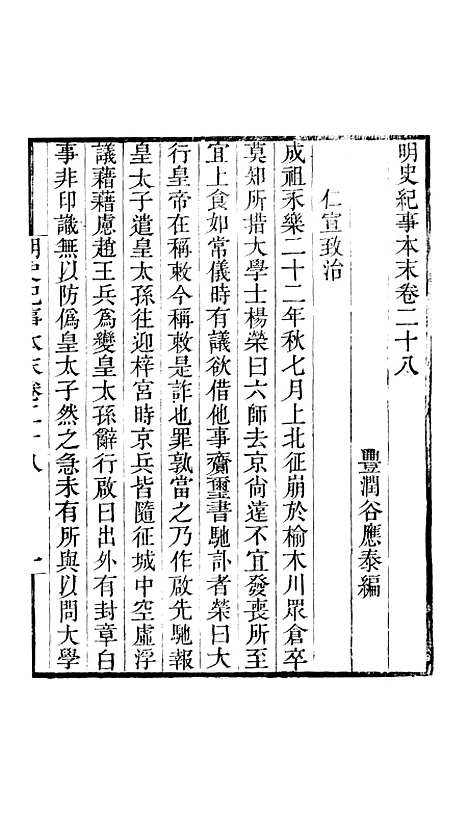 明史紀事本末卷二十八
豐潤谷應泰編
仁宣致治
成祖永樂二十二年秋七月上北征崩於榆木川眾倉卒
莫知所措大學士楊榮曰六師去京尚遠不宜發喪所至
宜上食如常儀時有議欲借他事齎璽書馳訃者榮曰大
行皇帝在稱敕今稱敕是詐也罪孰當之乃作啟先馳報
皇太子遣皇太孫往迎梓宮時京兵皆隨征城中空虛浮
議藉藉慮趙王兵為變皇太孫辭行啟曰出外有封章白
事非印識無以防偽皇太子然之急未有所與以問大學
明史紀事本末卷二十八
一